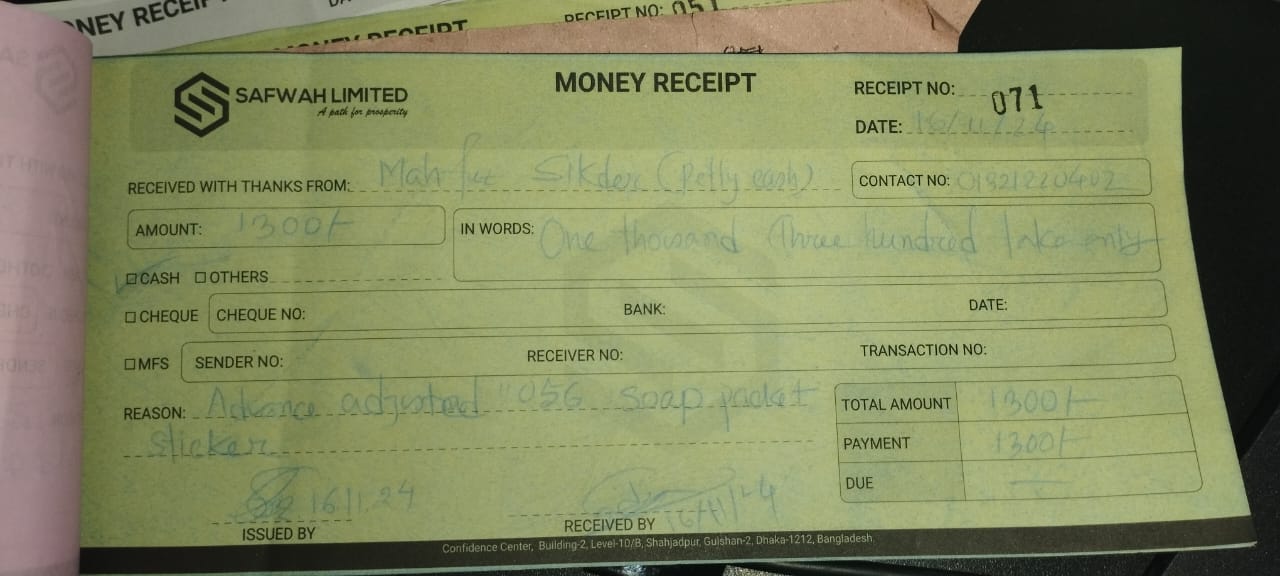 MONEY RECEIPT
RECEIPT NO: 051
MONEY RECEIPT
SAFWAH LIMITED
A path for prosperity
MONEY RECEIPT
RECEIPT NO: 071
DATE: 16/11/24
RECEIVED WITH THANKS FROM: Mahfuz Sikder (Petty cash)
CONTACT NO: 01921220402
AMOUNT: 1300/-
IN WORDS: One thousand Three hundred taka only
CASH OTHERS
CHEQUE CHEQUE NO: BANK: DATE:
MFS SENDER NO: RECEIVER NO: TRANSACTION NO:
REASON: Advance adjusted "056 Soap packet
sticker
TOTAL AMOUNT 1300/-
PAYMENT 1300/-
DUE
16.11.24
16/11/24
ISSUED BY
RECEIVED BY
Confidence Center, Building-2, Level-10/B, Shahjadpur, Gulshan-2, Dhaka-1212, Bangladesh.